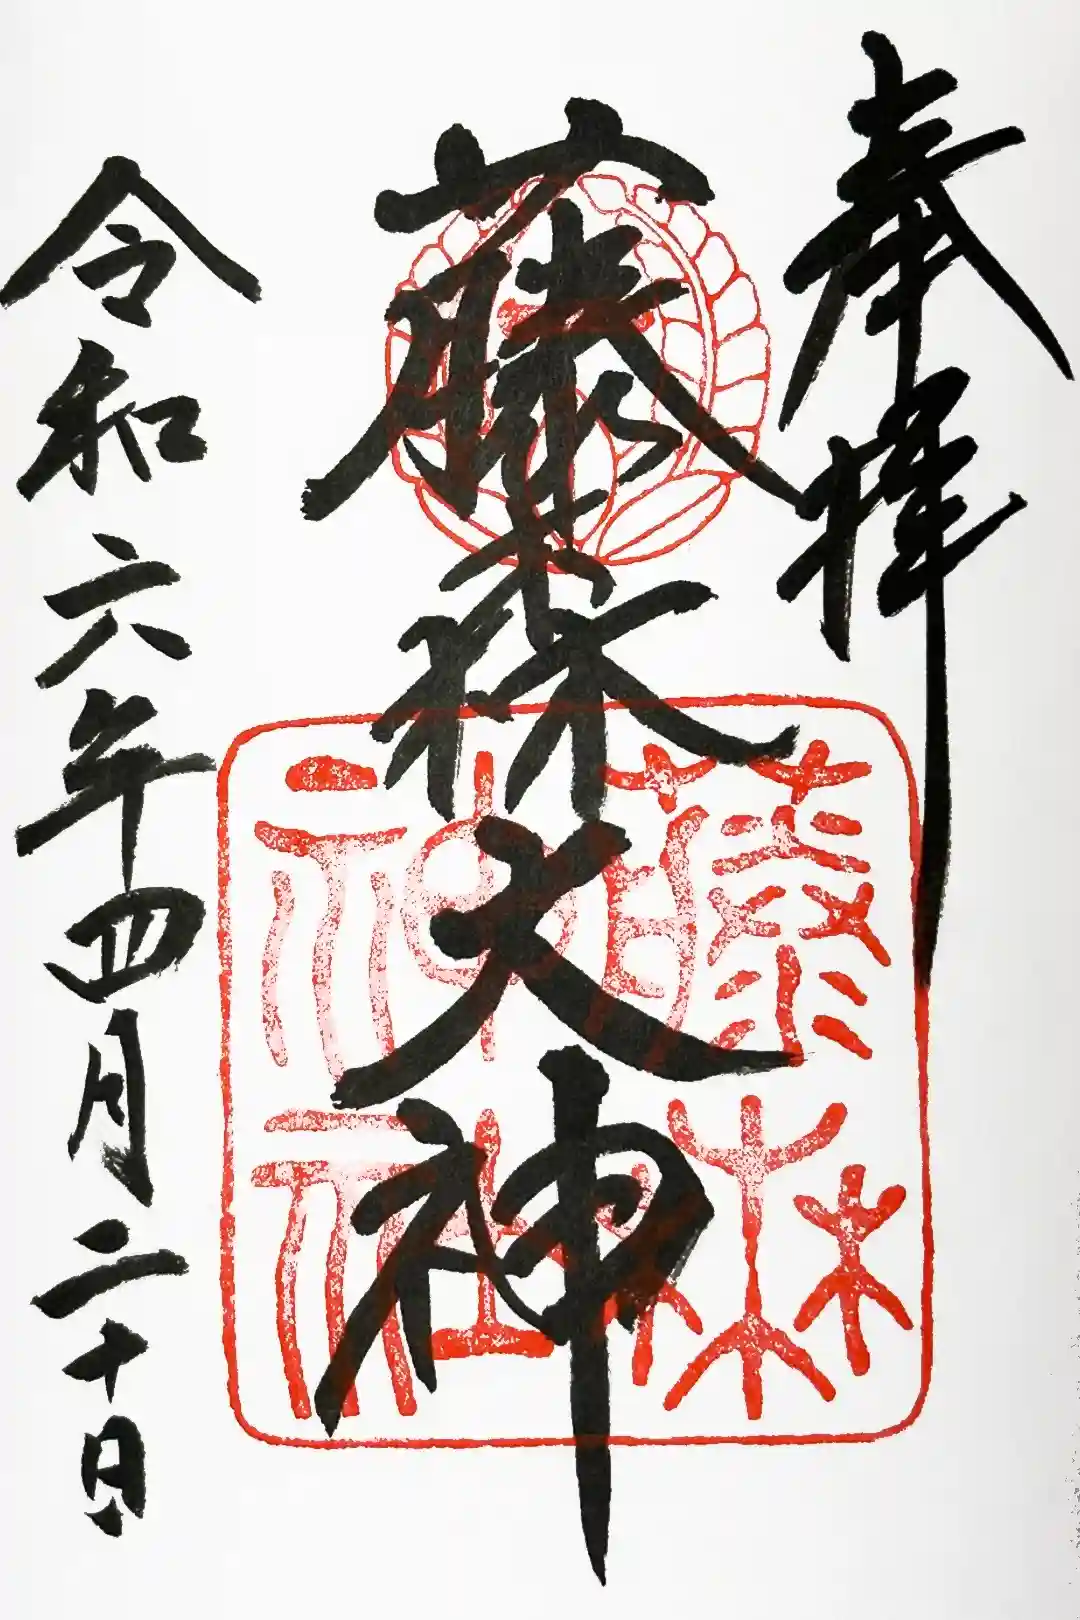 奉拝
藤森大神
藤森神社
令和六年四月二十日